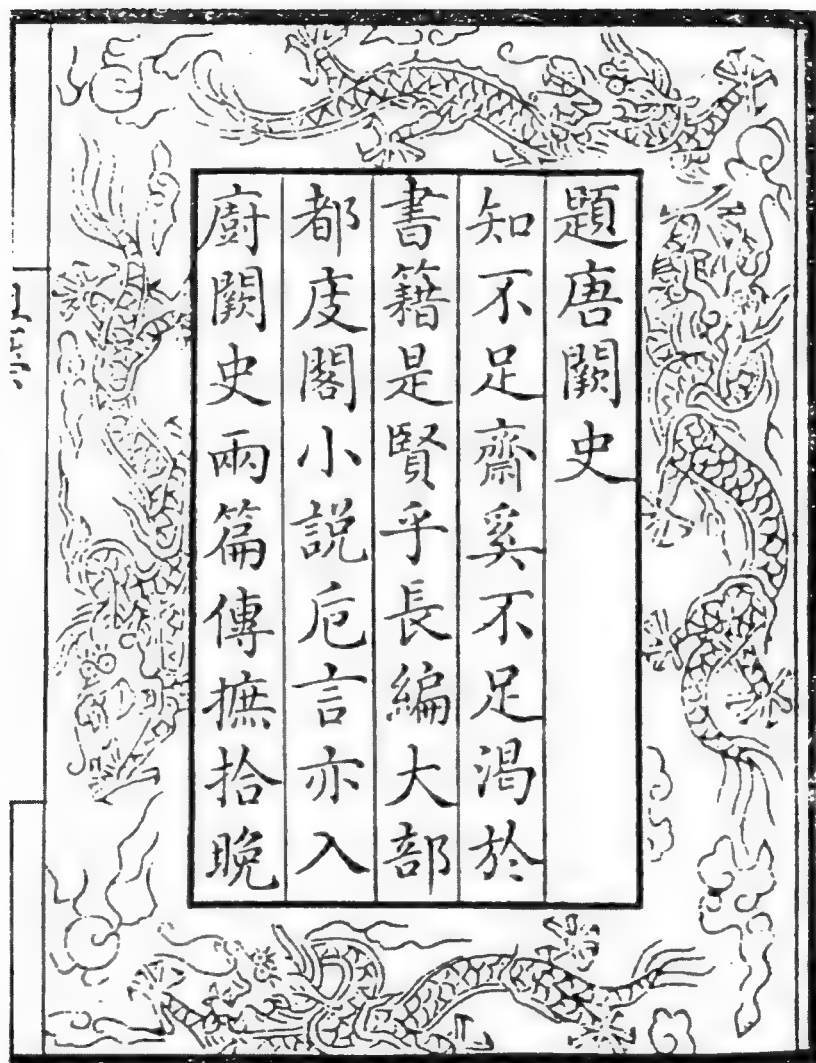 題唐闕史
知不足齋奚不足渴於
書籍是賢乎長編大部
都庋閣小說卮言亦入
廚闕史兩篇傳摭拾晚